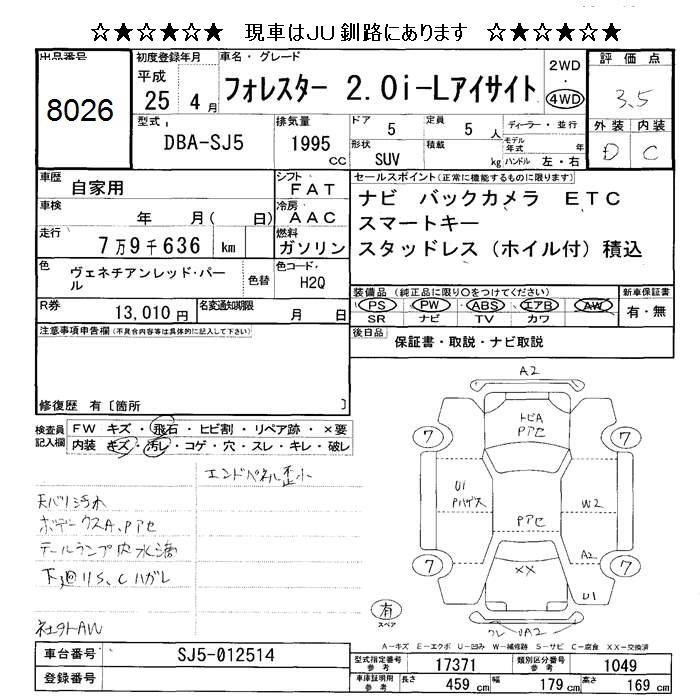 ☆★☆★☆★ 現車はJU釧路にあります ☆★☆★☆★
出品番号
8026
初度登録年月
平成
25 4 月
車名・グレード
フォレスター 2.0i-Lアイサイト
2WD
・
4WD
評価点
3.5
外装 内装
D C
型式
DBA-SJ5
排気量
1995
cc
ドア
5
定員
5 人
形状
SUV
積載
kg
ディーラー・並行
モデル年式
年
ハンドル 左・右
車歴
自家用
車検
年 月( 日)
走行
7万9千636 km
色
ヴェネチアンレッド・パール
色替
シフト
FAT
冷房
AAC
燃料
ガソリン
色コード
H2Q
R券
13,010円
名変通知期限
月 日
セールスポイント(正常に機能するものに限ります)
ナビ バックカメラ ETC
スマートキー
スタッドレス(ホイル付)積込
装備品(純正品に限り○をつけてください)
PS PW ABS エアB AW
SR ナビ TV カワ
新車保証書
有・無
後日品
保証書・取説・ナビ取説
注意事項申告欄(不具合内容等は具体的に記入して下さい)
修復歴 有[箇所 ]
検査員記入欄
FW キズ・飛石・ヒビ割・リペア跡・×要
内装 キズ・汚レ・コゲ・穴・スレ・キレ・破レ
エンドパネル歪小
天バリ汚れ
ボデークスA、Pアセ
テールランプ内水滴
下廻りS、Cハガレ
社外AW
A2
トビA
Pアセ
7 7
U1
Pハゲス
W2
Pアセ
A2
7 7
XX
U1
UA2
有
スペア
A-キズ E-エクボ U-凹み W-補修跡 S-サビ C-腐食 XX-交換済
車台番号 SJ5-012514
登録番号
型式指定番号 参考 17371 類別区分番号 参考 1049
車庫証明用 参考 長さ 459 cm 幅 179 cm 高さ 169 cm